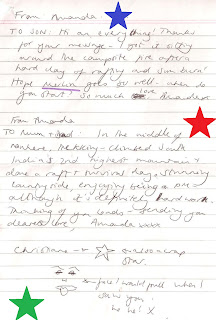 From Amanda
TO JON: Hi an everything! Thanks
for your message - I got it
around the campsite fire after a
hard day of rafting and sun burn!
Hope goes well - when do
you start? So much love Amanda
From Amanda
To Mum + Dad. In the middle of
nowhere, trekking - climbed South
India's 2nd highest mountain +
done a raft + survival day, stunning
countryside, enjoying being a
although it's definitely hard work.
Thinking of you loads - sending you
dearest love, Amanda
Christiane
star.
face! would pull when I
saw you!
he he! X